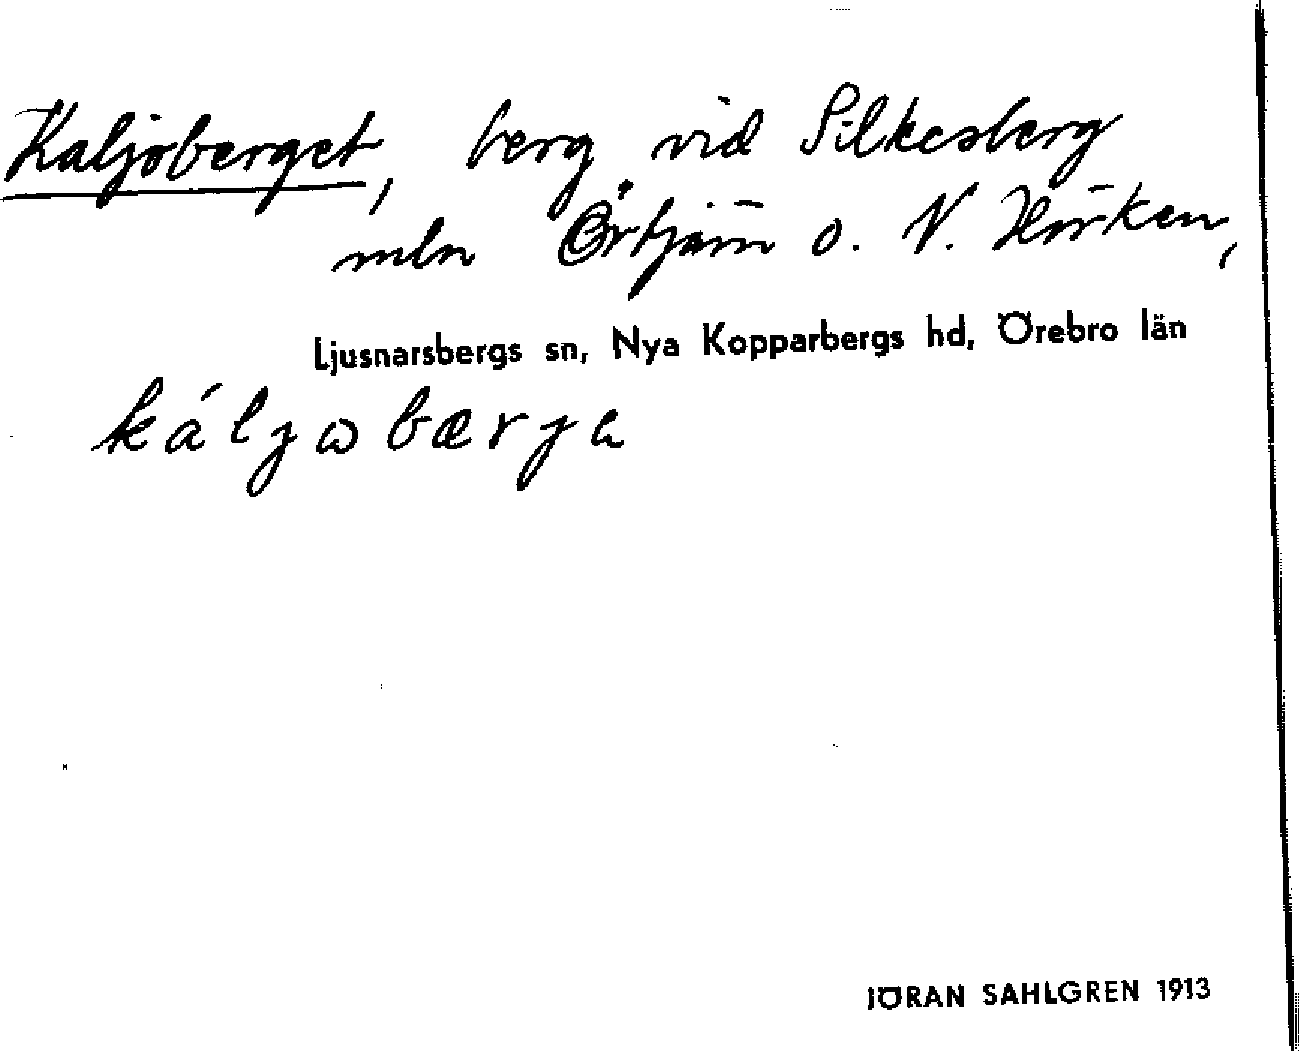 Kaljoberget, berg vid Silkesberg
mln Örtjärn o. N. Hörken,
Ljusnarsbergs sn, Nya Kopparbergs hd, Örebro län
káljωbærja
JÖRAN SAHLGREN 1913